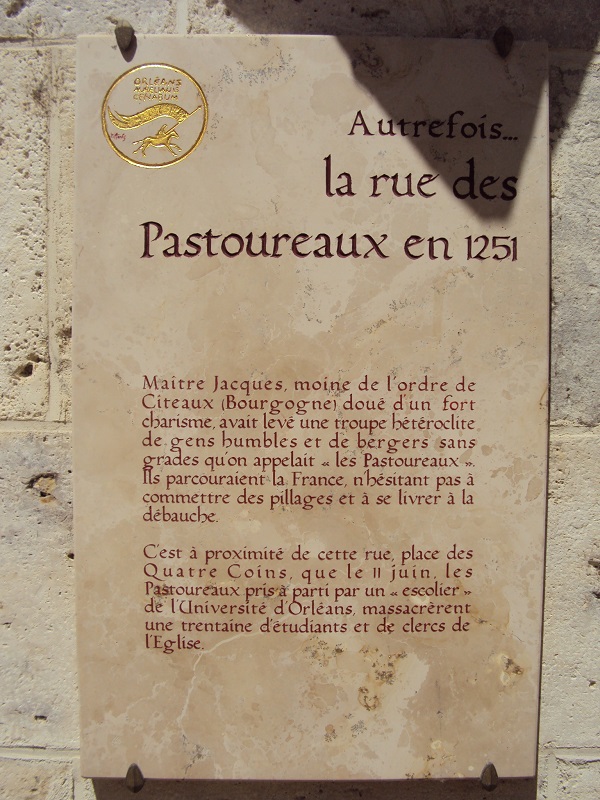 ORLÉANS
AURELIANIS
CENABUM
Autrefois...
la rue des
Pastoureaux en 1251
Maitre Jacques, moine de l'ordre de
Citeaux (Bourgogne) doué d'un fort
charisme, avait levé une troupe hétéroclite
de gens humbles et de bergers sans
grades qu'on appelait « les Pastoureaux ».
Ils parcouraient la France, n'hésitant pas à
commettre des pillages et à se livrer à la
débauche.
C'est à proximité de cette rue, place des
Quatre Coins, que le 11 juin, les
Pastoureaux pris à parti par un « escolier »
de l'Université d'Orléans, massacrèrent
une trentaine d'étudiants et de clercs de
l'Eglise.